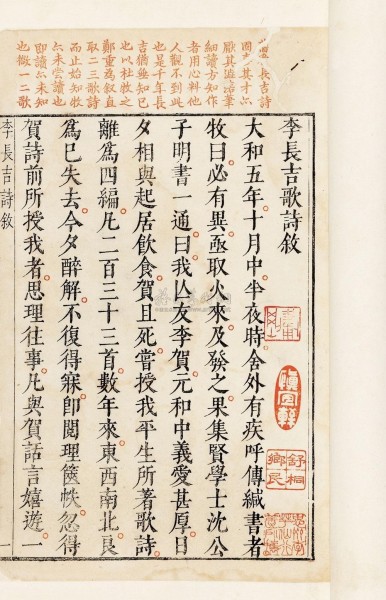 長吉詩
其才亦
厭其澁落筆
細讀方知作
者用心料他
人觀不到此
也是千年長
吉猶無知已
也以杜牧之
鄭重爲敘直
取二三歌詩
而止始知牧
亦未嘗讀也
卽讀亦未知
也微一二歌
李長吉歌詩敘
大和五年十月中半夜時舍外有疾呼傳緘書者
牧曰必有異亟取火來及發之果集賢學士沈公
子明書一通曰我亡友李賀元和中義愛甚厚日
夕相與起居飲食賀且死嘗授我平生所著歌詩
離爲四編凡二百三十三首數年來東西南北良
爲已失去今夕醉解不復得寐卽閱理篋帙忽得
賀詩前所授我者思理往事凡與賀話言嬉遊一
李長吉詩敘
一